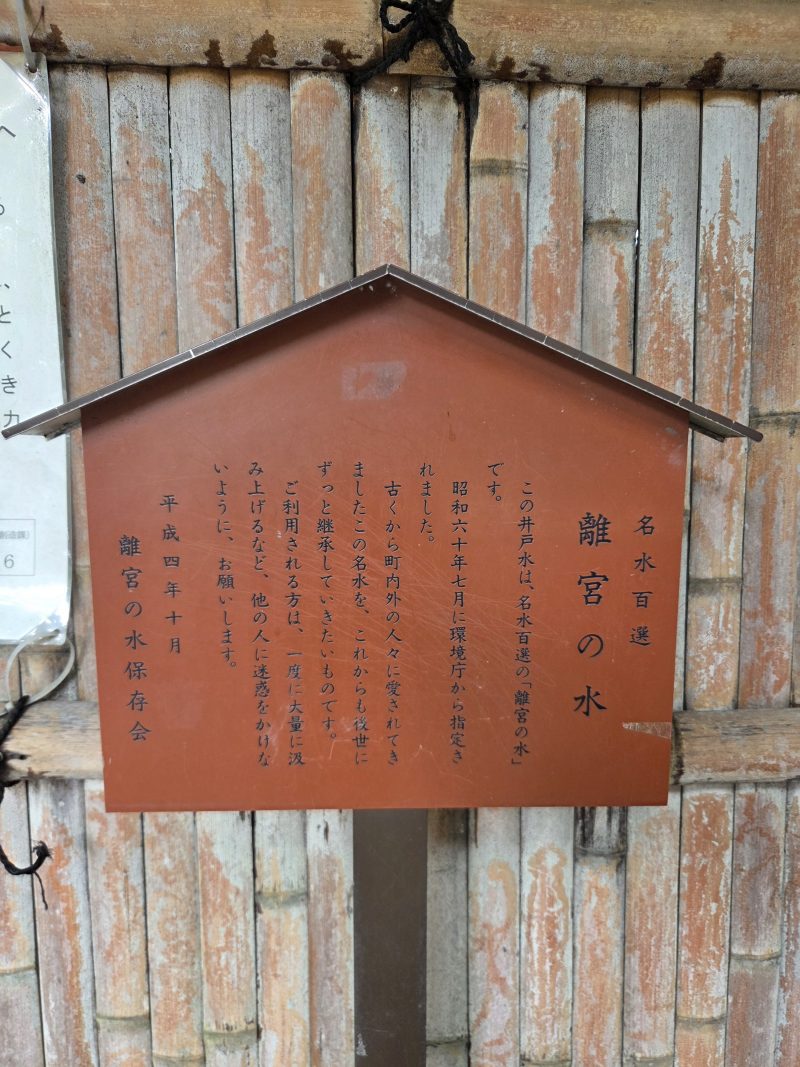 名水百選
離宮の水
この井戸水は、名水百選の「離宮の水」
です。
昭和六十年七月に環境庁から指定さ
れました。
古くから町内外の人々に愛されてき
ましたこの名水を、これからも後世に
ずっと継承していきたいものです。
ご利用される方は、一度に大量に汲
み上げるなど、他の人に迷惑をかけな
いように、お願いします。
平成四年十月
離宮の水保存会
へ
とくきカ
6